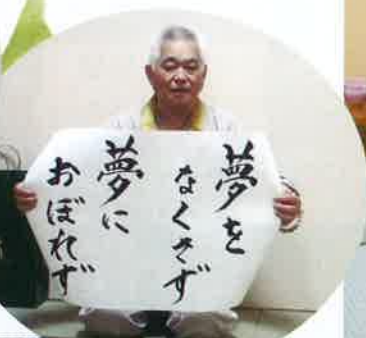 夢を
なくさず
夢に
おぼれず